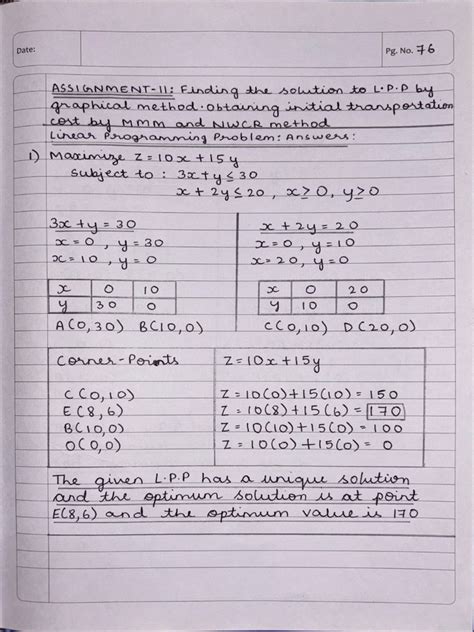 Date:
Pg. No. 76
ASSIGNMENT-11: Finding the solution to L.P.P by
graphical method. Obtaining initial transportation
cost by MMM and NWCR method
Linear Programming Problem: Answers:
1) Maximize Z=10x+15y
Subject to : 3x+y≤30
x+2y≤20, x≥0, y≥0
3x+y=30
x=0, y=30
x=10, y=0
x 0 10
y 30 0
A(0,30) B(10,0)
x+2y=20
x=0, y=10
x=20, y=0
x 0 20
y 10 0
C(0,10) D(20,0)
Corner-Points Z=10x+15y
C(0,10) Z=10(0)+15(10)=150
E(8,6) Z=10(8)+15(6)=170
B(10,0) Z=10(10)+15(0)=100
O(0,0) Z=10(0)+15(0)=0
The given L.P.P has a unique solution
and the optimum solution is at point
E(8,6) and the optimum value is 170